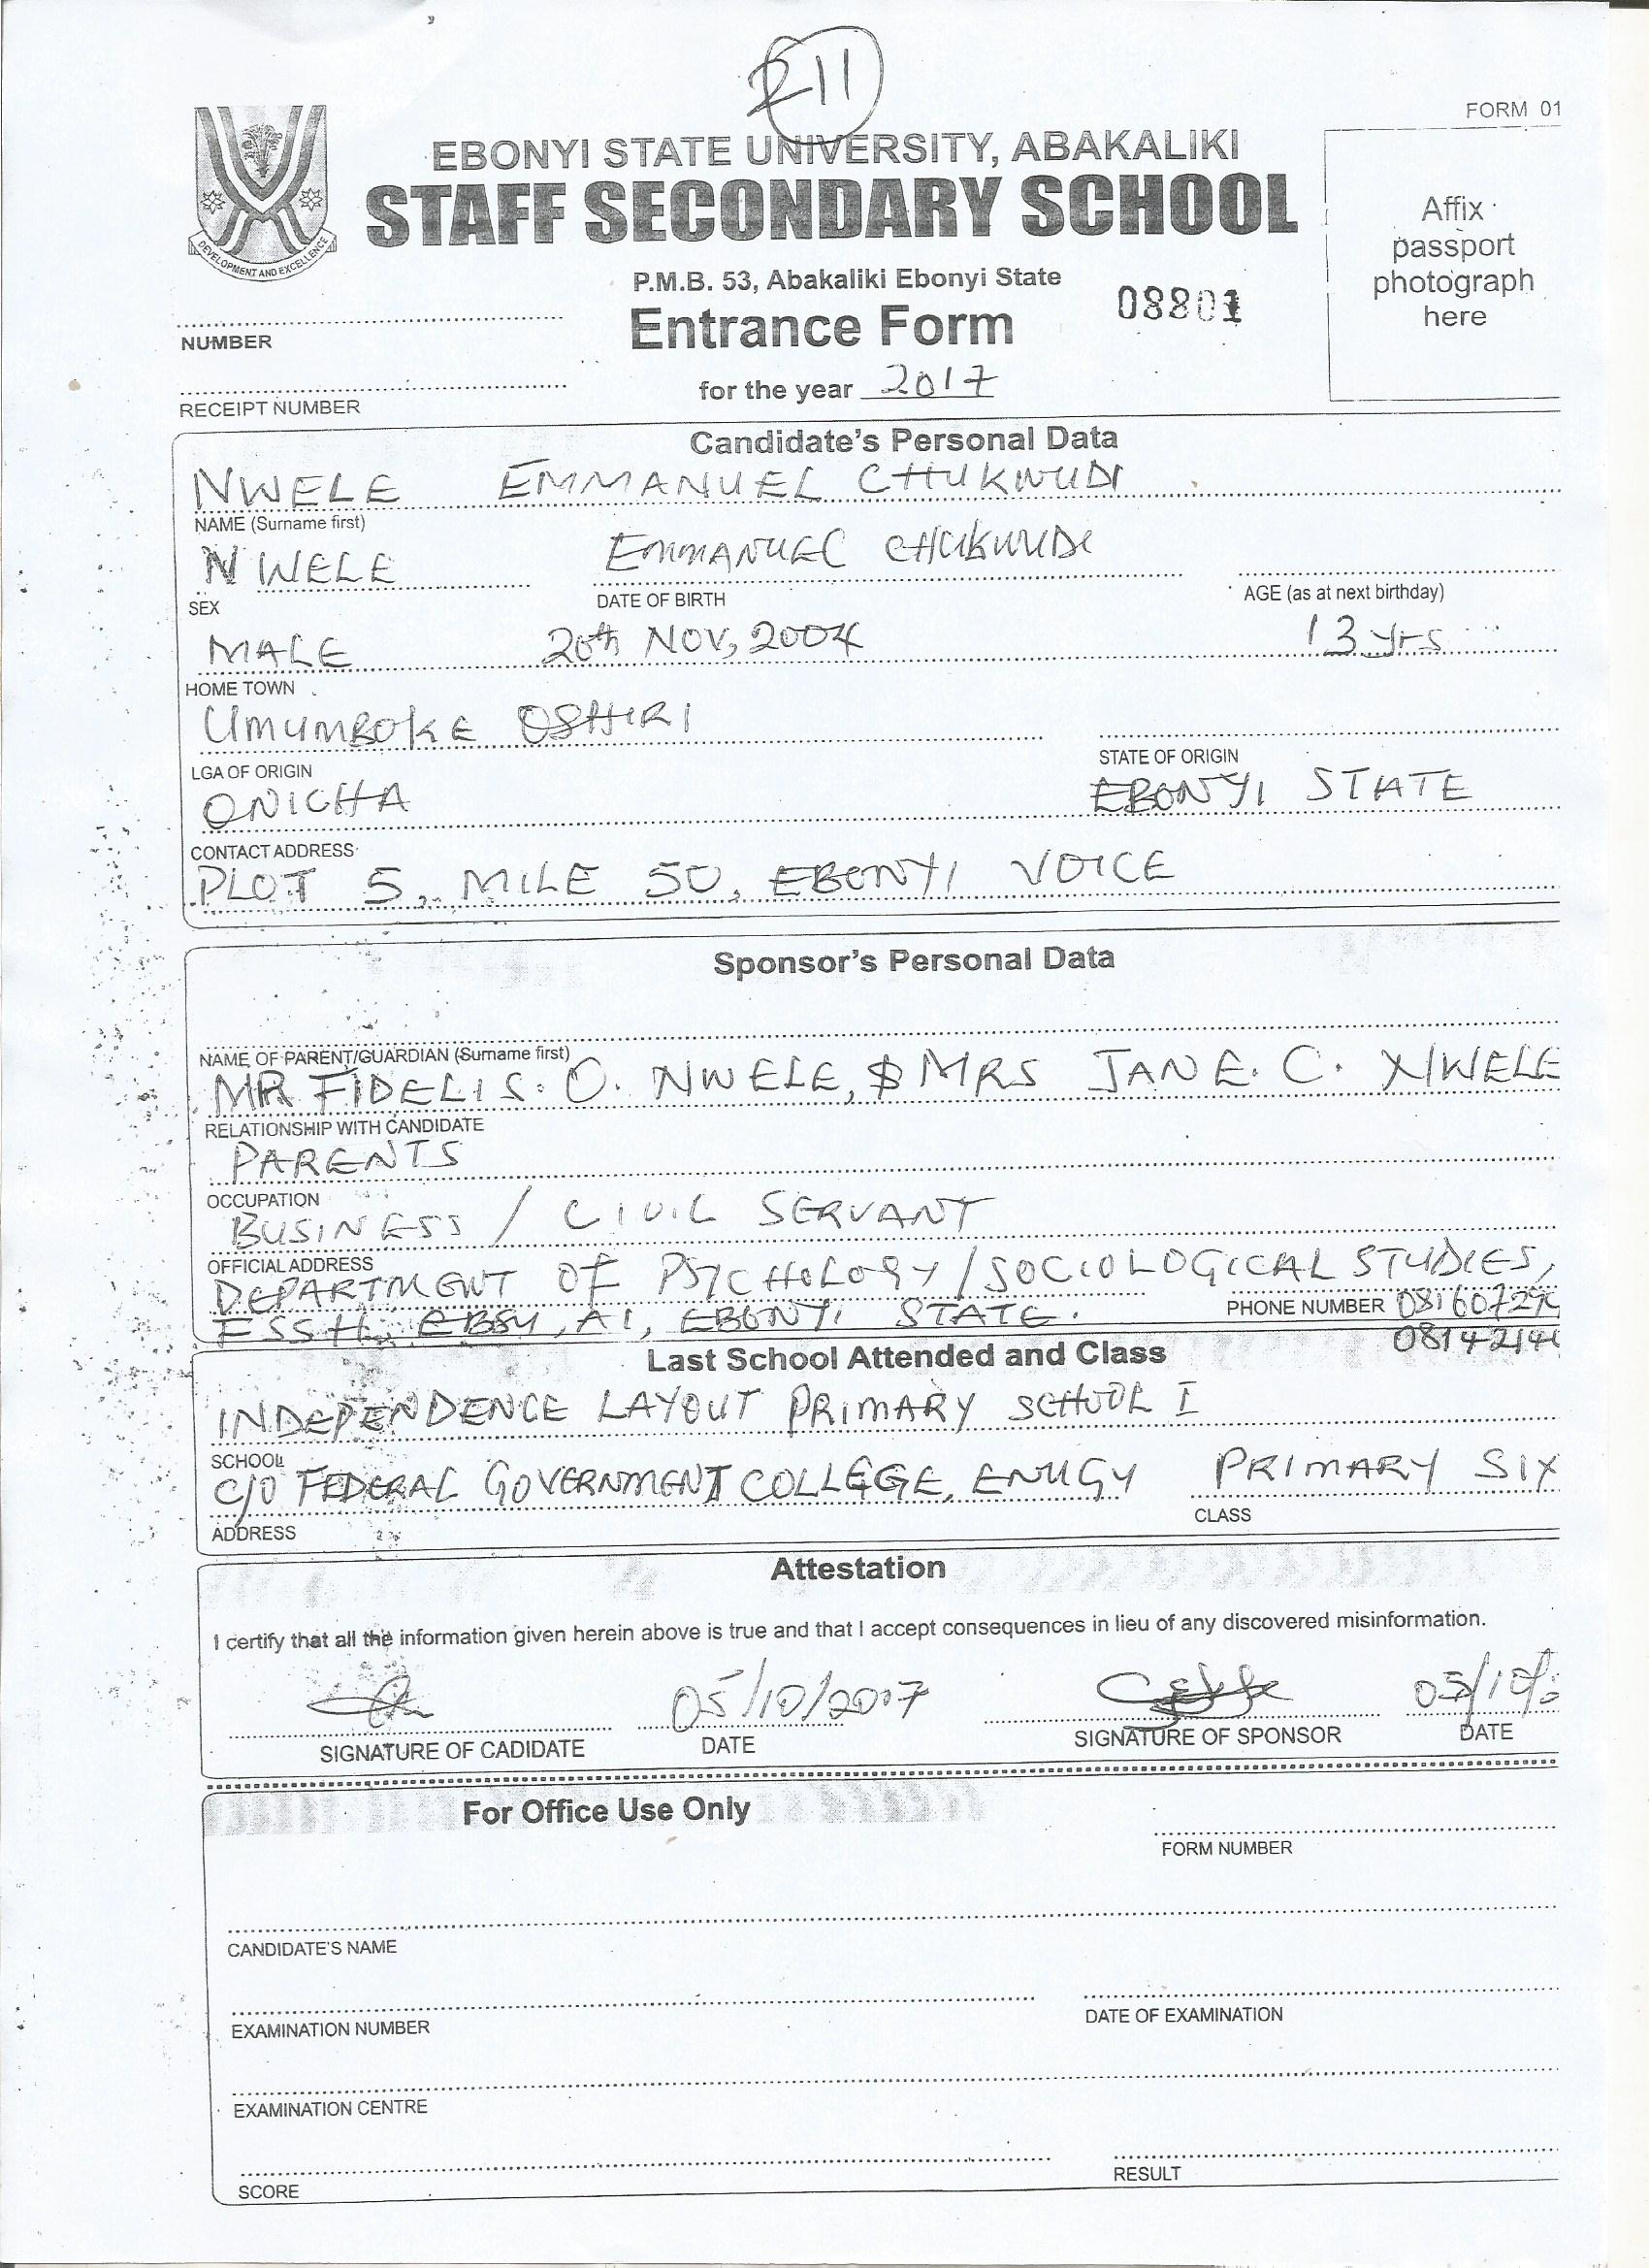 211
FORM 01
EBONYI STATE UNIVERSITY, ABAKALIKI
STAFF SECONDARY SCHOOL
DEVELOPMENT AND EXCELLENCE
P.M.B. 53, Abakaliki Ebonyi State
Affix
passport
photograph
here
Entrance Form
08801
NUMBER
for the year 2017
RECEIPT NUMBER
Candidate's Personal Data
NWELE EMMANUEL CHUKWUDI
NAME (Surname first)
NWELE EMMANUEL CHUKWUDI
SEX DATE OF BIRTH AGE (as at next birthday)
MALE 20th NOV, 2004 13 yrs
HOME TOWN
UMUMBOKE OSHIRI
LGA OF ORIGIN STATE OF ORIGIN
ONICHA EBONYI STATE
CONTACT ADDRESS
PLOT 5, MILE 50, EBONYI VOICE
Sponsor's Personal Data
NAME OF PARENT/GUARDIAN (Surname first)
MR FIDELIS. O. NWELE, $ MRS JANE. C. NWELE
RELATIONSHIP WITH CANDIDATE
PARENTS
OCCUPATION
BUSINESS / CIVIL SERVANT
OFFICIAL ADDRESS
DEPARTMENT OF PSYCHOLOGY/SOCIOLOGICAL STUDIES,
FSSH, EBSU, AI, EBONYI STATE. PHONE NUMBER 08160729
0814214
Last School Attended and Class
INDEPENDENCE LAYOUT PRIMARY SCHOOL I
SCHOOL
C/O FEDERAL GOVERNMENT COLLEGE, ENUGU PRIMARY SIX
ADDRESS CLASS
Attestation
I certify that all the information given herein above is true and that I accept consequences in lieu of any discovered misinformation.
05/10/2017 05/10/
SIGNATURE OF CADIDATE DATE SIGNATURE OF SPONSOR DATE
For Office Use Only
FORM NUMBER
CANDIDATE'S NAME
EXAMINATION NUMBER DATE OF EXAMINATION
EXAMINATION CENTRE
SCORE RESULT